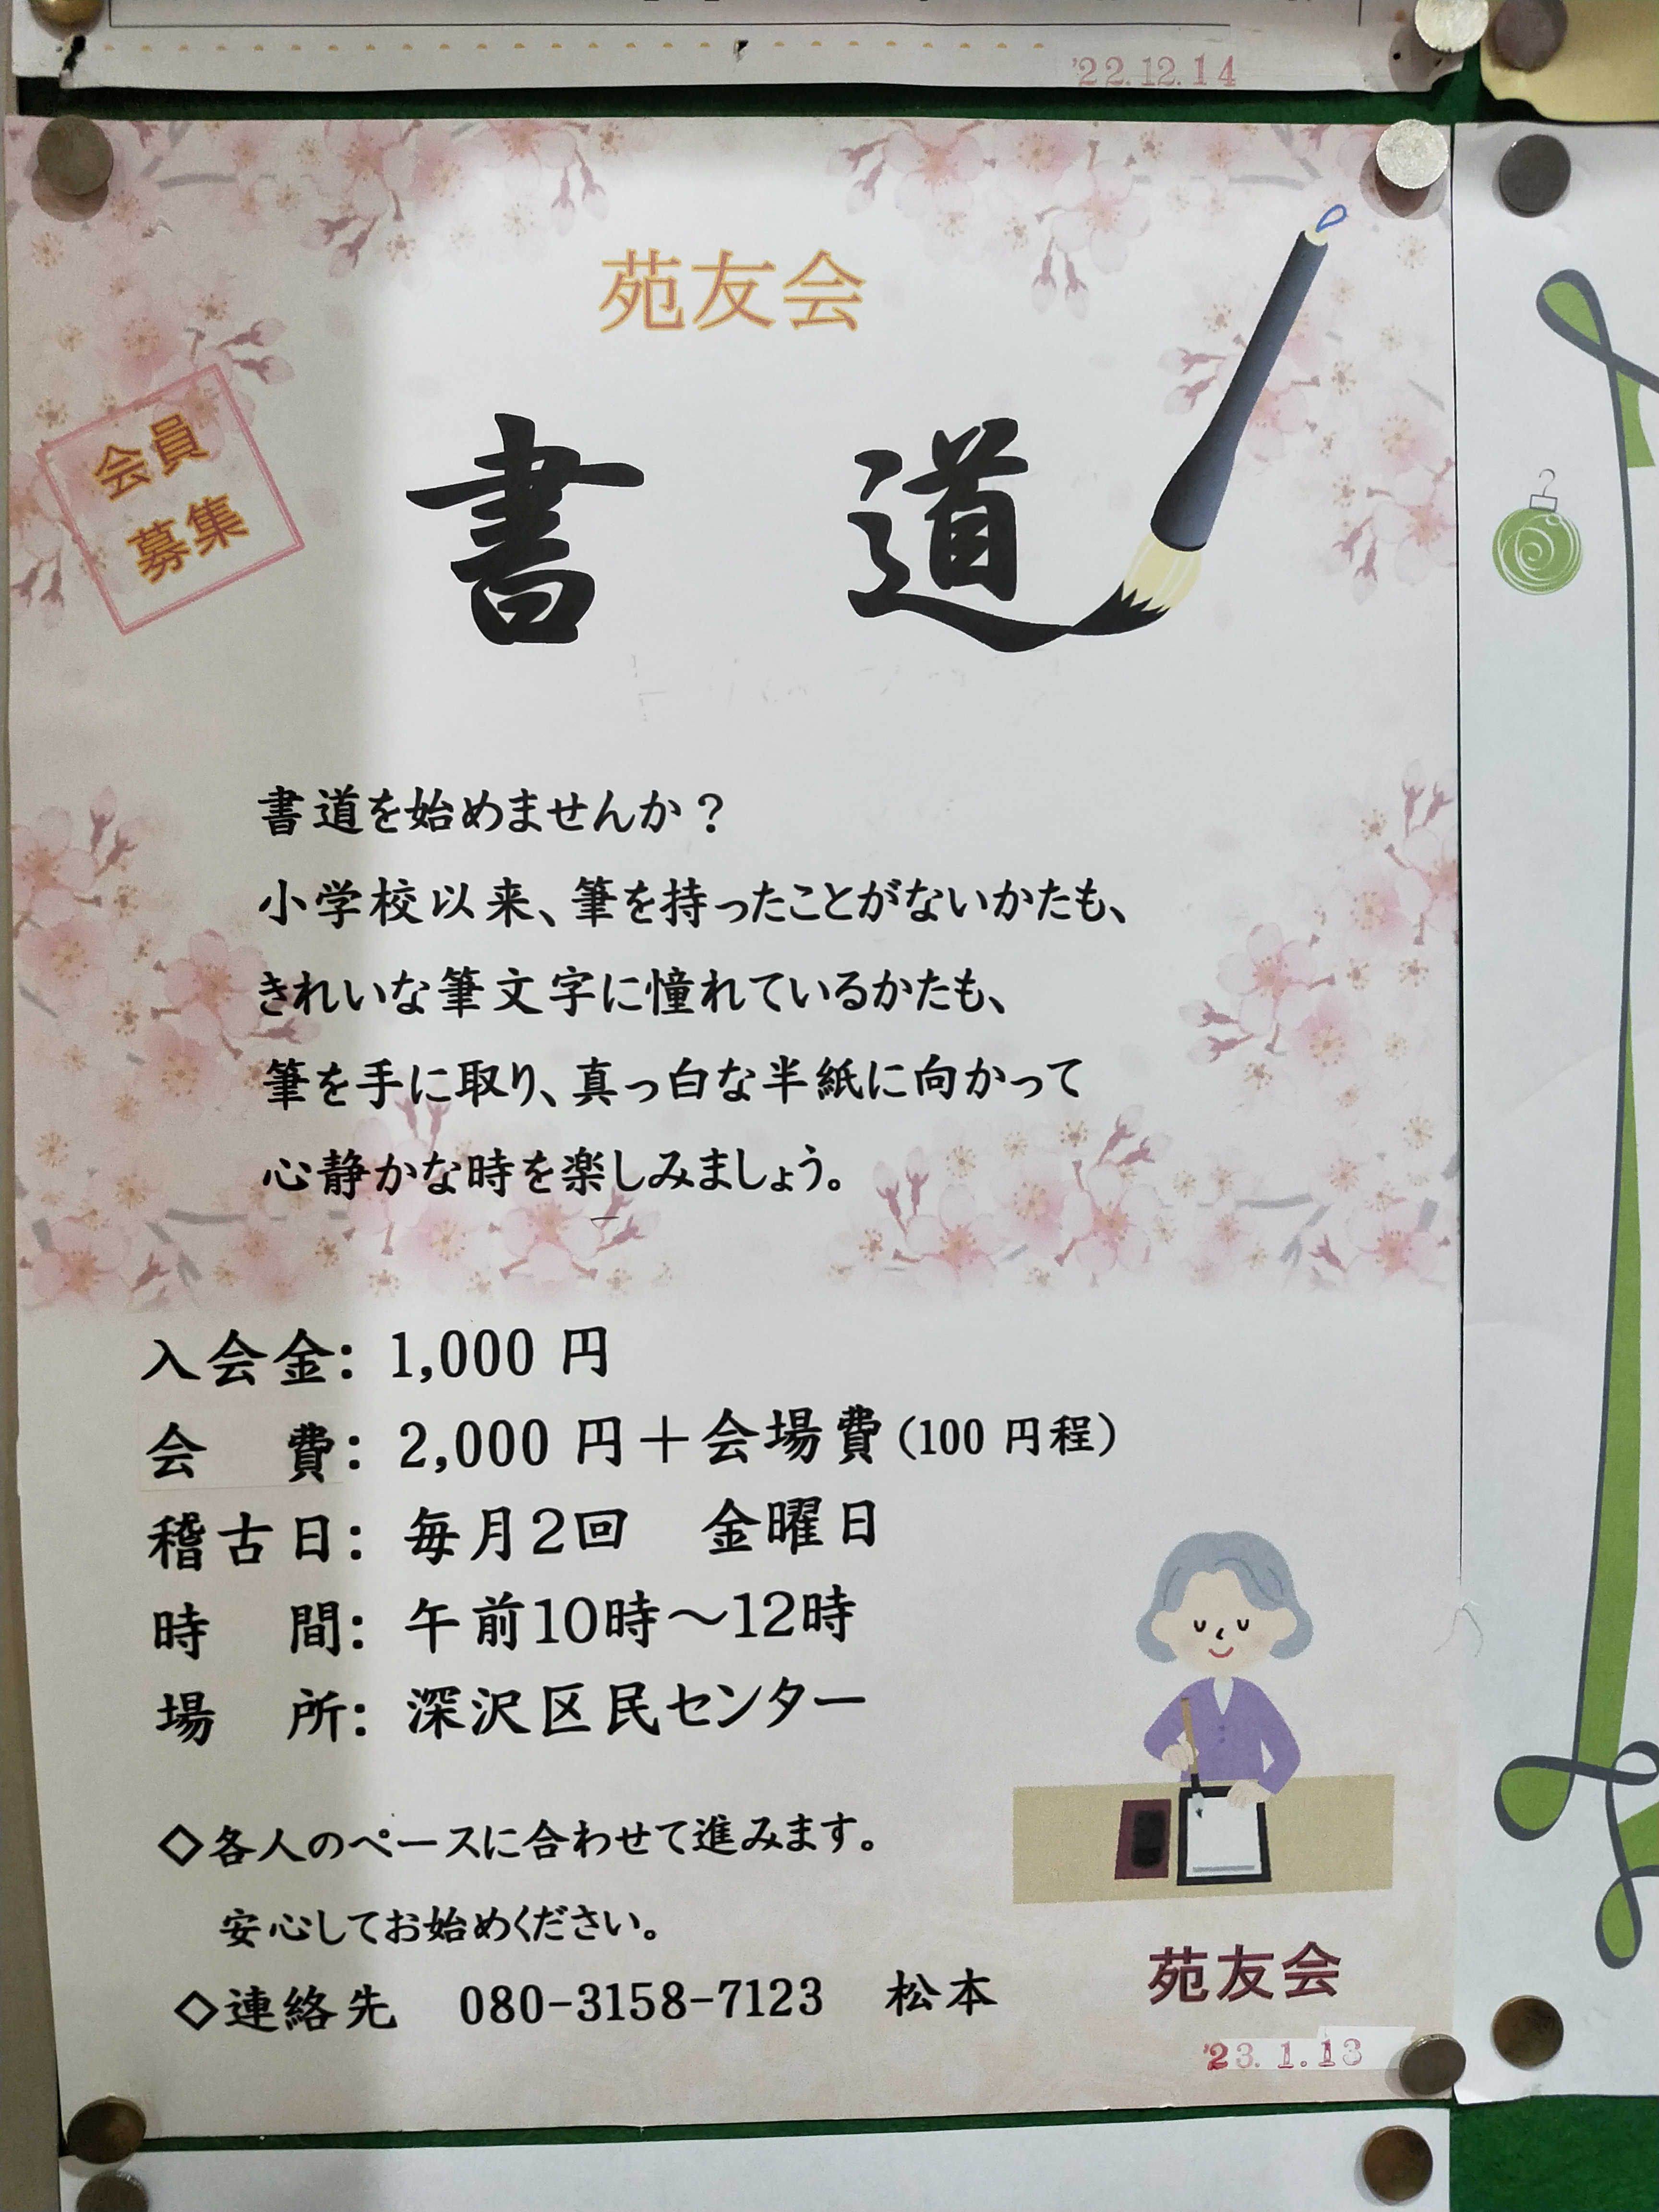 '22.12.14
苑友会
会員
募集
書 道
書道を始めませんか？
小学校以来、筆を持ったことがないかたも、
きれいな筆文字に憧れているかたも、
筆を手に取り、真っ白な半紙に向かって
心静かな時を楽しみましょう。
入会金: 1,000 円
会 費: 2,000 円＋会場費(100 円程)
稽古日: 毎月2回 金曜日
時 間: 午前10時〜12時
場 所: 深沢区民センター
◇各人のペースに合わせて進みます。
安心してお始めください。
◇連絡先 080-3158-7123 松本
苑友会
'23.1.13